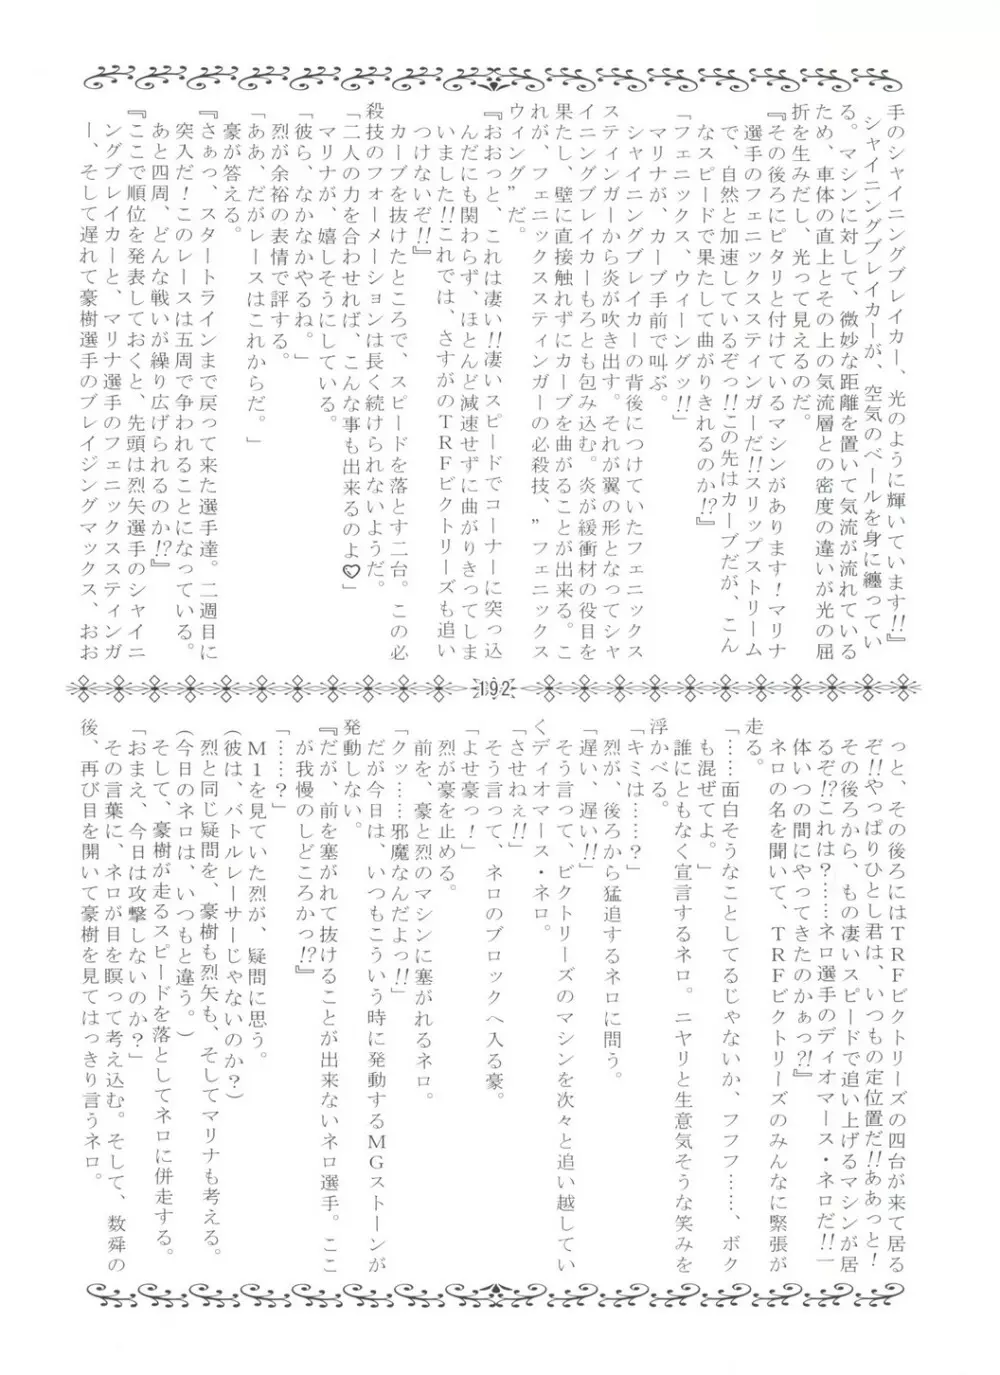 手のシャイニングブレイカー、光のように輝いています!!』
　シャイニングブレイカーが、空気のベールを身に纏ってい
る。マシンに対して、微妙な距離を置いて気流が流れている
ため、車体の直上とその上の気流層との密度の違いが光の屈
折を生みだし、光って見えるのだ。
『その後ろにピタリと付けているマシンがあります！マリナ
選手のフェニックススティンガーだ!!スリップストリーム
で、自然と加速しているぞっ!!この先はカーブだが、こん
なスピードで果たして曲がりきれるのか!?』
「フェニックス、ウィーングッ!!」
　マリナが、カーブ手前で叫ぶ。
　シャイニングブレイカーの背後につけていたフェニックス
スティンガーから炎が吹き出す。それが翼の形となってシャ
イニングブレイカーもろとも包み込む。炎が緩衝材の役目を
果たし、壁に直接触れずにカーブを曲がることが出来る。こ
れが、フェニックススティンガーの必殺技、”フェニックス
ウィング”だ。
『おおっと、これは凄い!!凄いスピードでコーナーに突っ込
んだにも関わらず、ほとんど減速せずに曲がりきってしま
いました!!これでは、さすがのＴＲＦビクトリーズも追い
つけないぞ!!』
　カーブを抜けたところで、スピードを落とす二台。この必
殺技のフォーメーションは長く続けられないようだ。
「二人の力を合わせれば、こんな事も出来るのよ♡」
　マリナが、嬉しそうにしている。
「彼ら、なかなかやるね。」
　烈が余裕の表情で評する。
「ああ、だがレースはこれからだ。」
　豪が答える。
『さぁっ、スタートラインまで戻って来た選手達。二週目に
突入だ！このレースは五周で争われることになっている。
あと四周、どんな戦いが繰り広げられるのか!?』
『ここで順位を発表しておくと、先頭は烈矢選手のシャイニ
ングブレイカーと、マリナ選手のフェニックススティンガ
ー、そして遅れて豪樹選手のブレイジングマックス、おお
192
っと、その後ろにはＴＲＦビクトリーズの四台が来て居る
ぞ!!やっぱりひとし君は、いつもの定位置だ!!ああっと！
その後ろから、もの凄いスピードで追い上げるマシンが居
るぞ!?これは？……ネロ選手のディオマース・ネロだ!!一
体いつの間にやってきたのかぁっ?!』
　ネロの名を聞いて、ＴＲＦビクトリーズのみんなに緊張が
走る。
「……面白そうなことしてるじゃないか、フフフ……、ボク
も混ぜてよ。」
　誰にともなく宣言するネロ。ニヤリと生意気そうな笑みを
浮かべる。
「キミは……？」
　烈が、後ろから猛追するネロに問う。
「遅い、遅い!!」
　そう言って、ビクトリーズのマシンを次々と追い越してい
くディオマース・ネロ。
「させねぇ!!」
　そう言って、ネロのブロックへ入る豪。
「よせ豪っ！」
　烈が豪を止める。
　前を、豪と烈のマシンに塞がれるネロ。
「クッ……邪魔なんだよっ!!」
　だが今日は、いつもこういう時に発動するＭＧストーンが
発動しない。
『だが、前を塞がれて抜けることが出来ないネロ選手。ここ
が我慢のしどころかっ!?』
「……？」
　Ｍ１を見ていた烈が、疑問に思う。
（彼は、バトルレーサーじゃないのか？）
　烈と同じ疑問を、豪樹も烈矢も、そしてマリナも考える。
（今日のネロは、いつもと違う。）
　そして、豪樹が走るスピードを落としてネロに併走する。
「おまえ、今日は攻撃しないのか？」
　その言葉に、ネロが目を瞑って考え込む。そして、数舜の
後、再び目を開いて豪樹を見てはっきり言うネロ。